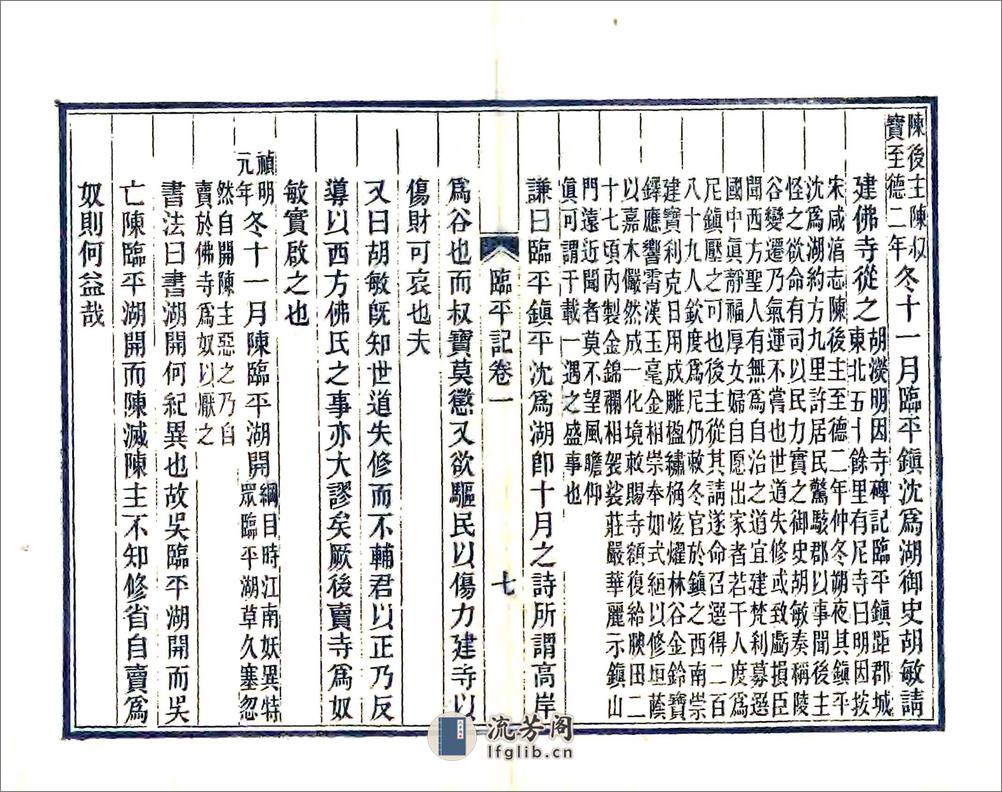 陳後主陳叔
寶至德二年
冬十一月臨平鎮沈爲湖御史胡敏請
建佛寺從之
胡濙明因寺碑記臨平鎮距郡城
東北五十餘里有尼寺曰明因按
宋咸湻志陳後主至德二年仲冬朔夜其鎮平
沈爲湖約方九里許居民驚駭郡以事聞後主
怪之欲命有司以民力實之御史胡敏奏稱陵
谷變遷乃氣運不嘗也世道失修或致虧損臣
聞西方聖人有無爲自治之道宜建梵利募選
國中眞靜福厚女婦自愿出家者若干人度爲
尼鎮壓之可也後主從其請遂命召選得二百
八十九人欽度爲尼仍敕冬官於鎮之西南崇
建寶利克日用成雕楹繡桷炫燿林谷金鈴寶
鐸應響霄漢玉毫金相崇奉如式絙以修垣蔭
以嘉木儼然成一化境敕賜寺額復給賸田二
十七頃內製金錦襴相袈裟莊嚴華麗示鎮山
門遠近聞者莫不望風瞻仰
眞可謂千載一遇之盛事也
謙曰臨平鎮平沈爲湖卽十月之詩所謂高岸
臨平記卷一
七
爲谷也而叔寶莫懲又欲驅民以傷力建寺以
傷財可哀也夫
又曰胡敏旣知世道失修而不輔君以正乃反
導以西方佛氏之事亦大謬矣厥後賣寺爲奴
敏實啟之也
禎明
元年
冬十一月陳臨平湖開
綱目時江南妖異特
眾臨平湖草久塞忽
然自開陳主惡之乃自
賣於佛寺爲奴以厭之
書法曰書湖開何紀異也故吳臨平湖開而吳
亡陳臨平湖開而陳滅陳主不知修省自賣爲
奴則何益哉
流芳阁
lfglib.cn